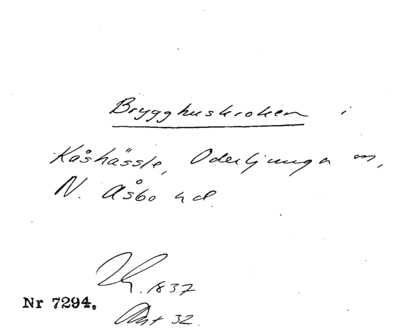 Brygghuskroken i
Kåshässle, Oderljunga sn,
N. Åsbo hd.
1837
Nr 7294.
32.